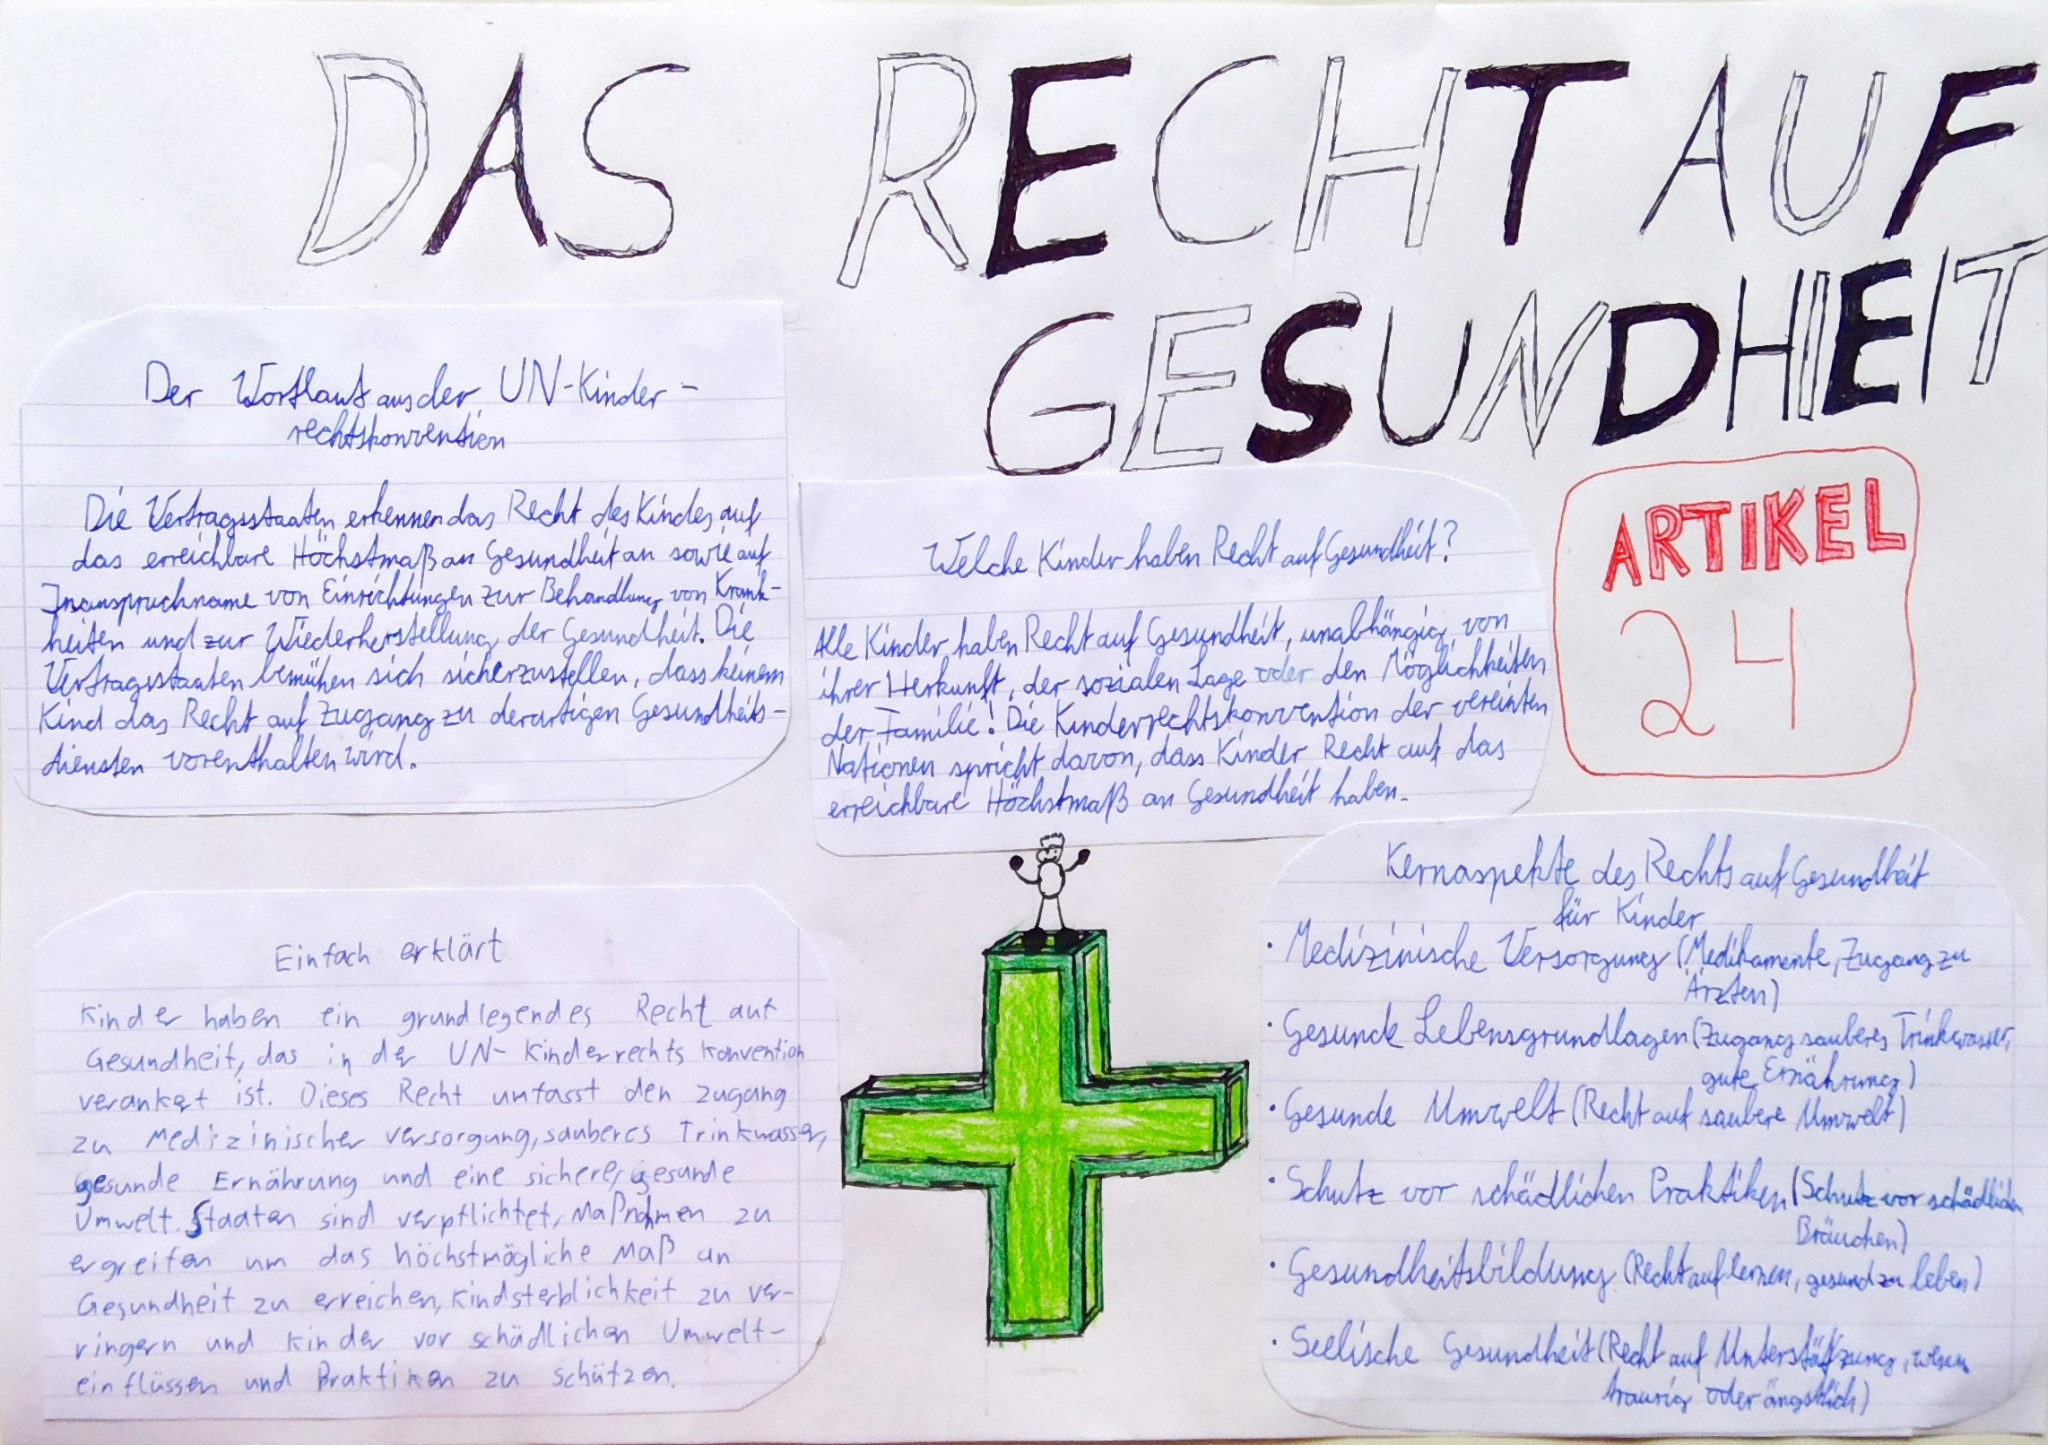 DAS RECHT AUF
GESUNDHEIT
ARTIKEL
24
Der Wortlaut aus der UN-Kinder-
rechtskonvention
Die Vertragsstaaten erkennen das Recht des Kindes auf
das erreichbare Höchstmaß an Gesundheit an sowie auf
Inanspruchname von Einrichtungen zur Behandlung von Krank-
heiten und zur Wiederherstellung der Gesundheit. Die
Vertragsstaaten bemühen sich sicherzustellen, dass keinem
Kind das Recht auf Zugang zu derartigen Gesundheits-
diensten vorenthalten wird.
Welche Kinder haben Recht auf Gesundheit?
Alle Kinder haben Recht auf Gesundheit, unabhängig von
ihrer Herkunft, der sozialen Lage oder den Möglichkeiten
der Familie! Die Kinderrechtskonvention der vereinten
Nationen spricht davon, dass Kinder Recht auf das
erreichbare Höchstmaß an Gesundheit haben.
Einfach erklärt
Kinder haben ein grundlegendes Recht auf
Gesundheit, das in der UN-Kinderrechts konvention
verankert ist. Dieses Recht umfasst den zugang
zu Medizinischer versorgung, sauberes Trinkwasser,
gesunde Ernährung und eine sichere, gesunde
Umwelt. Staaten sind verpflichtet, Maßnhmen zu
ergreifen um das höchstmögliche Maß an
Gesundheit zu erreichen, Kindsterblichkeit zu ver-
ringern und Kinder vor schädlichen Umwelt-
einflüssen und Praktiken zu schützen.
Kernaspekte des Rechts auf Gesundheit
für Kinder
· Medizinische Versorgung (Medikamente, Zugang zu
Ärzten)
· Gesunde Lebensgrundlagen (Zugang sauberes Trinkwasser,
gute Ernährung)
· Gesunde Umwelt (Recht auf saubere Umwelt)
· Schutz vor schädlichen Praktiken (Schutz vor schädlichen
Bräuchen)
· Gesundheitsbildung (Recht auf lernen, gesund zu leben)
· Seelische Gesundheit (Recht auf Unterstützung, wenn
traurig oder ängstlich)